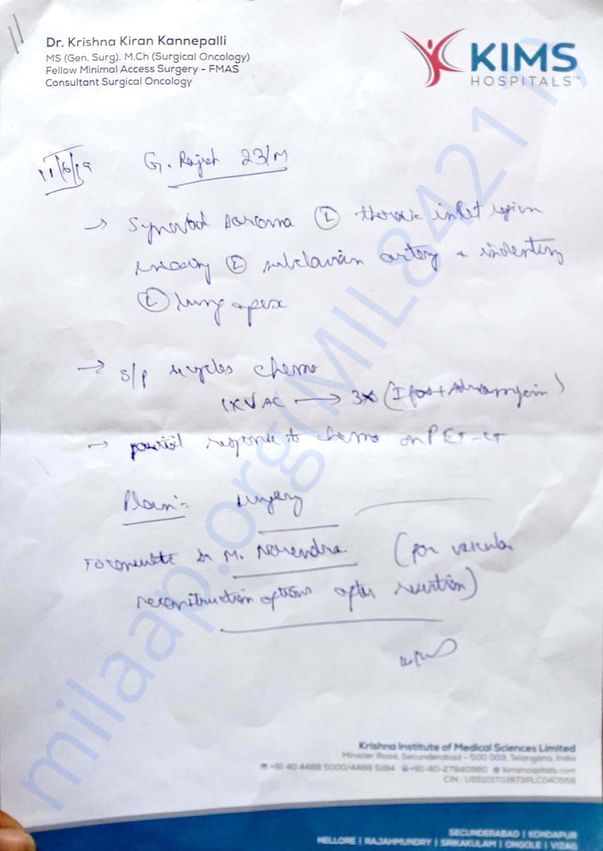 Dr. Krishna Kiran Kannepalli
MS (Gen. Surg). M.Ch (Surgical Oncology)
Fellow Minimal Access Surgery - FMAS
Consultant Surgical Oncology
KIMS
HOSPITALS™
11/6/19 G. Rajet 23/M
→ Synovial sarcoma Ⓛ thoracic inlet region
Ⓛ subclavian artery & indenting
Ⓛ lung apex
→ s/p cycles chemo
1XVAC → 3x (Ifos + Adriamycin)
→ partial response to chemo on PET-CT
Plan:- Surgery
To consult Dr M. Narendra (for vascular
reconstruction options after resection)
Krishna Institute of Medical Sciences Limited
Minister Road, Secunderabad - 500 003, Telangana, India
+91 40 4488 5000/4488 5184 +91-40-27840980 kimshospitals.com
SECUNDERABAD | KONDAPUR
NELLORE | RAJAHMUNDRY | SRIKAKULAM | ONGOLE | VIZAG
milaap.org/MIL8421